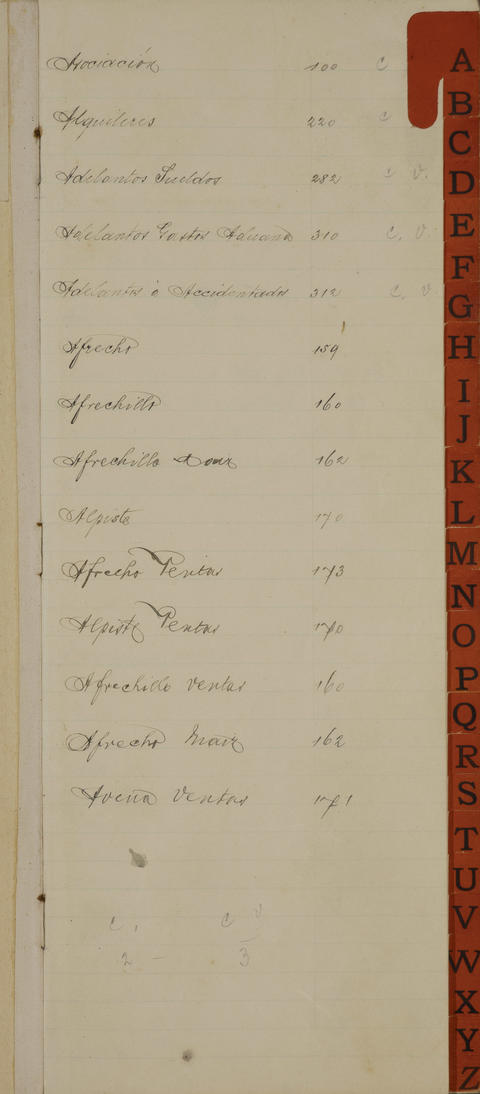 Asociación 100 C
Alquileres 220 C
Adelantos Sueldos 282 C V.
Adelantos Gastos Aduana 310 C. V.
Adelantos á Accidentados 312 C. V.
Afrecho 159
Afrechillo 160
Afrechillo 162
Alpiste 170
Afrecho Ventas 173
Alpiste Ventas 170
Afrechillo Ventas 160
Afrecho Maiz 162
Avena Ventas 171
C. C V
2 - 3
A
B
C
D
E
F
G
H
I
J
K
L
M
N
O
P
Q
R
S
T
U
V
W
X
Y
Z